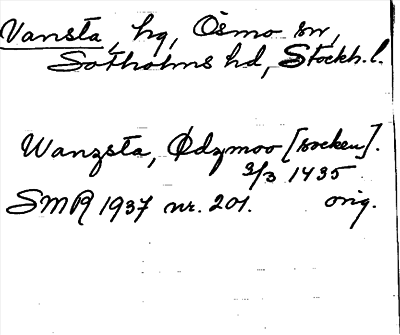 Vansta, hg, Ösmo sn,
Sotholms hd, Stockh. l.
Wanzsta, Ødzmoo [socken].
3/3 1435
SMR 1937 nr. 201. orig.